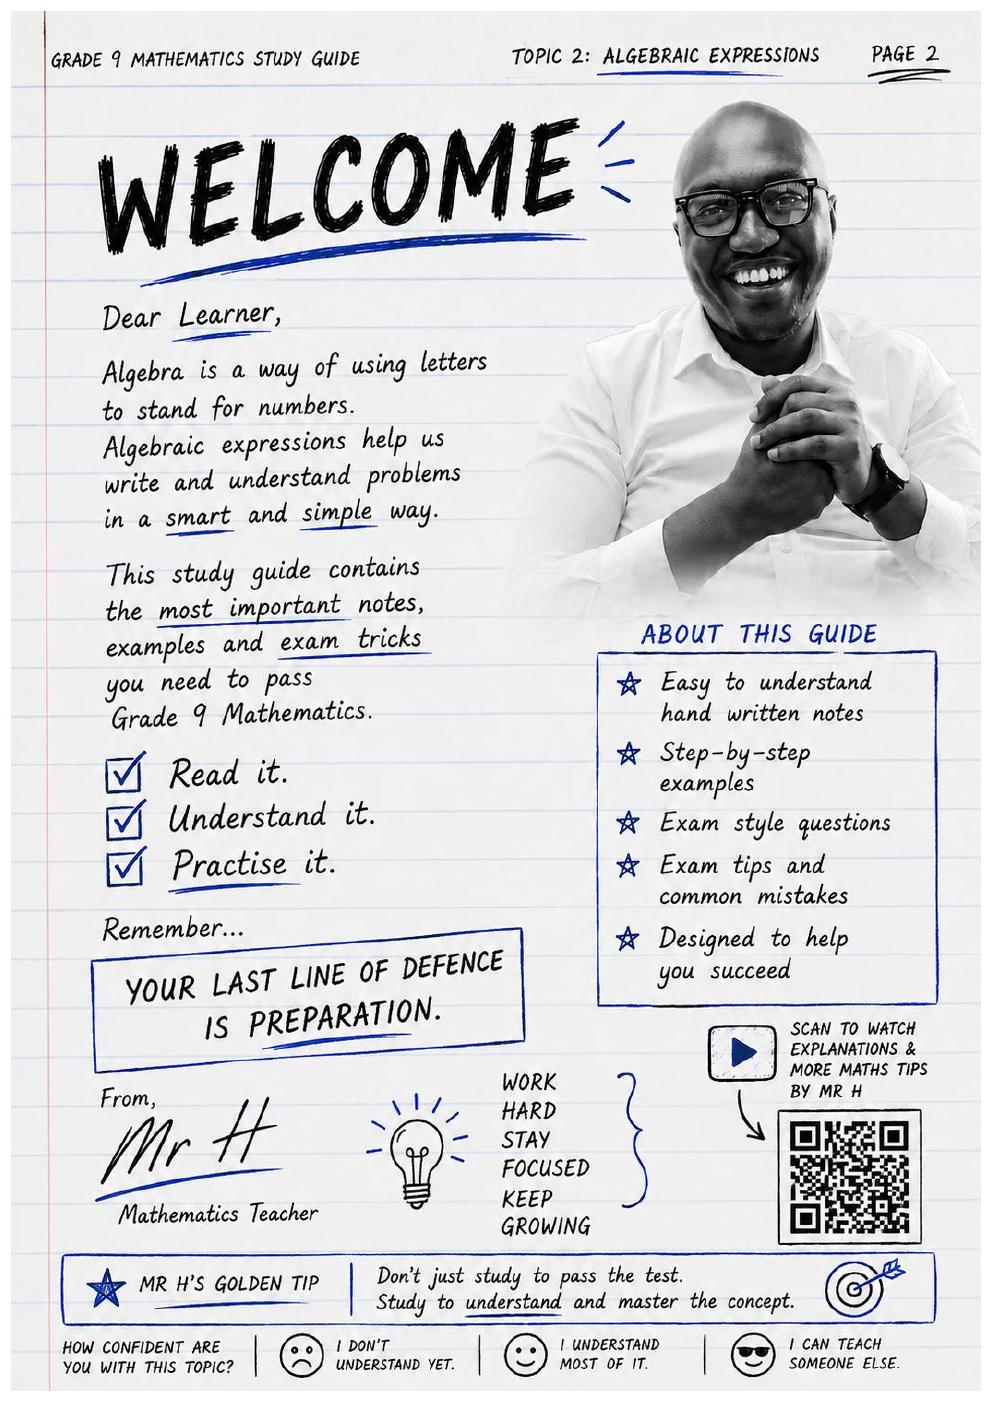 GRADE 9 MATHEMATICS STUDY GUIDE
TOPIC 2: ALGEBRAIC EXPRESSIONS
PAGE 2
WELCOME
Dear Learner,
Algebra is a way of using letters
to stand for numbers.
Algebraic expressions help us
write and understand problems
in a smart and simple way.
This study guide contains
the most important notes,
examples and exam tricks
you need to pass
Grade 9 Mathematics.
Read it.
Understand it.
Practise it.
Remember...
YOUR LAST LINE OF DEFENCE
IS PREPARATION.
From,
Mr H
Mathematics Teacher
WORK
HARD
STAY
FOCUSED
KEEP
GROWING
ABOUT THIS GUIDE
Easy to understand
hand written notes
Step-by-step
examples
Exam style questions
Exam tips and
common mistakes
Designed to help
you succeed
SCAN TO WATCH
EXPLANATIONS &
MORE MATHS TIPS
BY MR H
MR H'S GOLDEN TIP
Don't just study to pass the test.
Study to understand and master the concept.
HOW CONFIDENT ARE
YOU WITH THIS TOPIC?
I DON'T
UNDERSTAND YET.
I UNDERSTAND
MOST OF IT.
I CAN TEACH
SOMEONE ELSE.